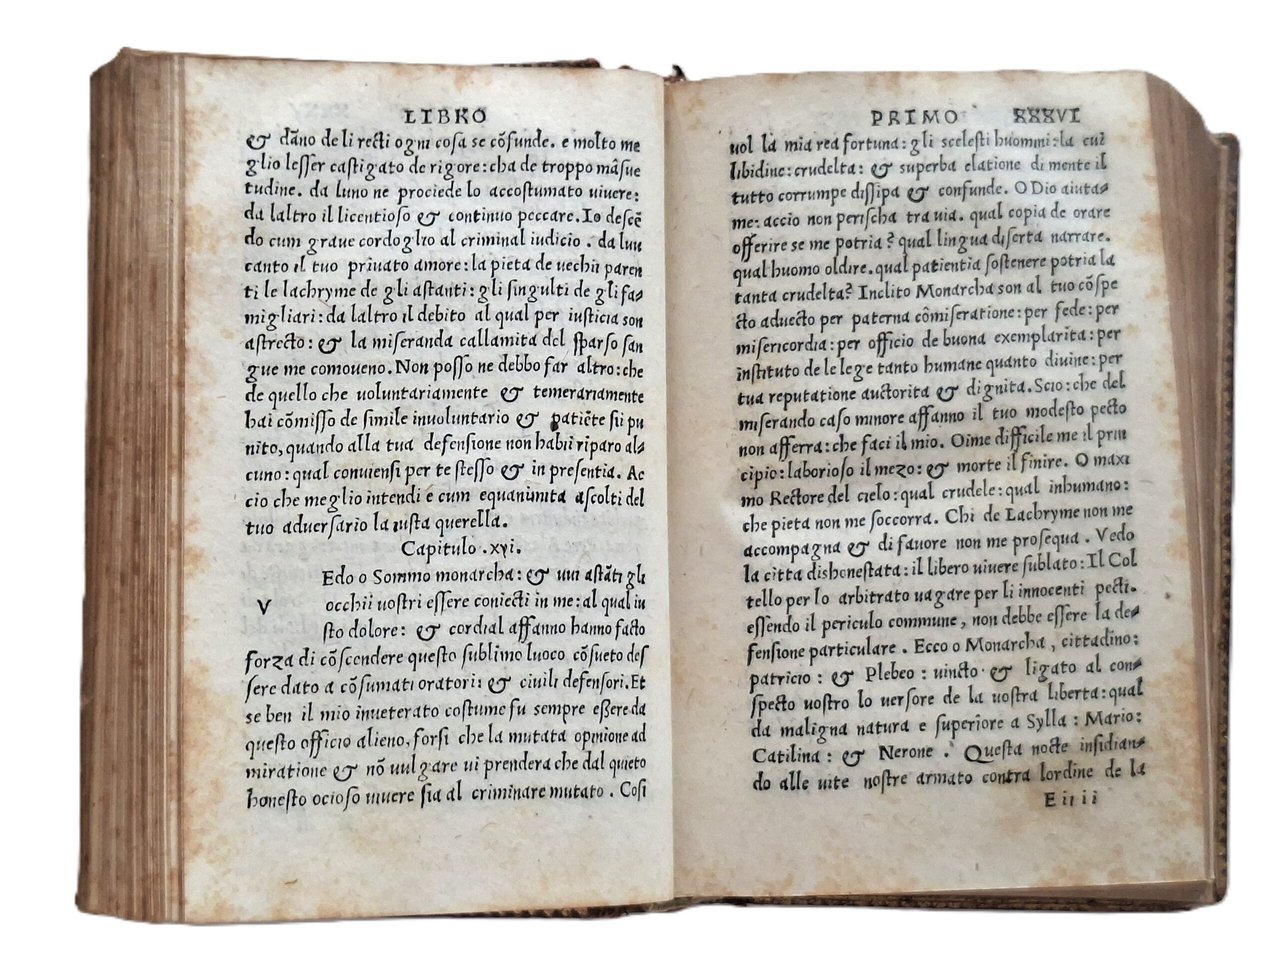 LIBRO
& dãno de li recti ogni cosa se cõfunde. e molto me
glio lesser castigato de rigore: cha de troppo mãsue
tudine. da luno ne prociede lo accostumato uiuere:
da laltro il licentioso & continuo peccare. Io descẽ
do cum graue cordoglio al criminal iudicio. da lun
canto il tuo priuato amore: la pieta de uechii paren
ti le lachryme de gli astanti: gli singulti de gli fa-
migliari: da laltro il debito al qual per iusticia son
astrecto: & la miseranda callamita del sparso san
gue me comoueno. Non posso ne debbo far altro: che
de quello che uoluntariamente & temerariamente
hai cõmisso de simile inuoluntario & patiẽte sii pu
nito, quando alla tua defensione non habii riparo al-
cuno: qual conuiensi per te stesso & in presentia. Ac
cio che meglio intendi e cum equanimita ascolti del
tuo aduersario la iusta querella.
Capitulo .xyi.
Edo o Sommo monarcha: & uui astãti gli
V occhii uostri essere coniecti in me: al qual iu
sto dolore: & cordial affanno hanno facto
forza di cõscendere questo sublimo luoco cõsueto des
sere dato a cõsumati oratori: & ciuili defensori. Et
se ben il mio inueterato costume fu sempre eßere da
questo officio alieno, forsi che la mutata opinione ad
miratione & nõ uulgare ui prendera che dal quieto
honesto ocioso uiuere sia al criminare mutato. Cosi
PRIMO XXXVI
uol la mia rea fortuna: gli scelesti huomini: la cui
libidine: crudelta: & superba elatione di mente il
tutto corrumpe dissipa & confunde. O Dio aiuta-
me: accio non perischa tra uia. qual copia de orare
offerire se me potria? qual lingua diserta narrare.
qual huomo oldire. qual patientia sostenere potria la
tanta crudelta? Inclito Monarcha son al tuo cõspe
cto aduecto per paterna cõmiseratione: per fede: per
misericordia: per officio de buona exemplarita: per
instituto de le lege tanto humane quanto diuine: per
tua reputatione auctorita & dignita. Scio: che del
miserando caso minore affanno il tuo modesto pecto
non afferra: che faci il mio. Oime difficile me il prin
cipio: laborioso il mezo: & morte il finire. O maxi
mo Rectore del cielo: qual crudele: qual inhumano:
che pieta non me soccorra. Chi de Lachryme non me
accompagna & di fauore non me prosequa. Vedo
la citta dishonestata: il libero uiuere sublato: Il Col
tello per lo arbitrato uagare per li innocenti pecti.
essendo il periculo commune, non debbe essere la de-
fensione particulare. Ecco o Monarcha, cittadino:
patricio: & Plebeo: uincto & ligato al con-
specto uostro lo uersore de la uostra liberta: qual
da maligna natura e superiore a Sylla: Mario:
Catilina: & Nerone. Questa nocte insidian-
do alle uite nostre armato contra lordine de la
E iiii